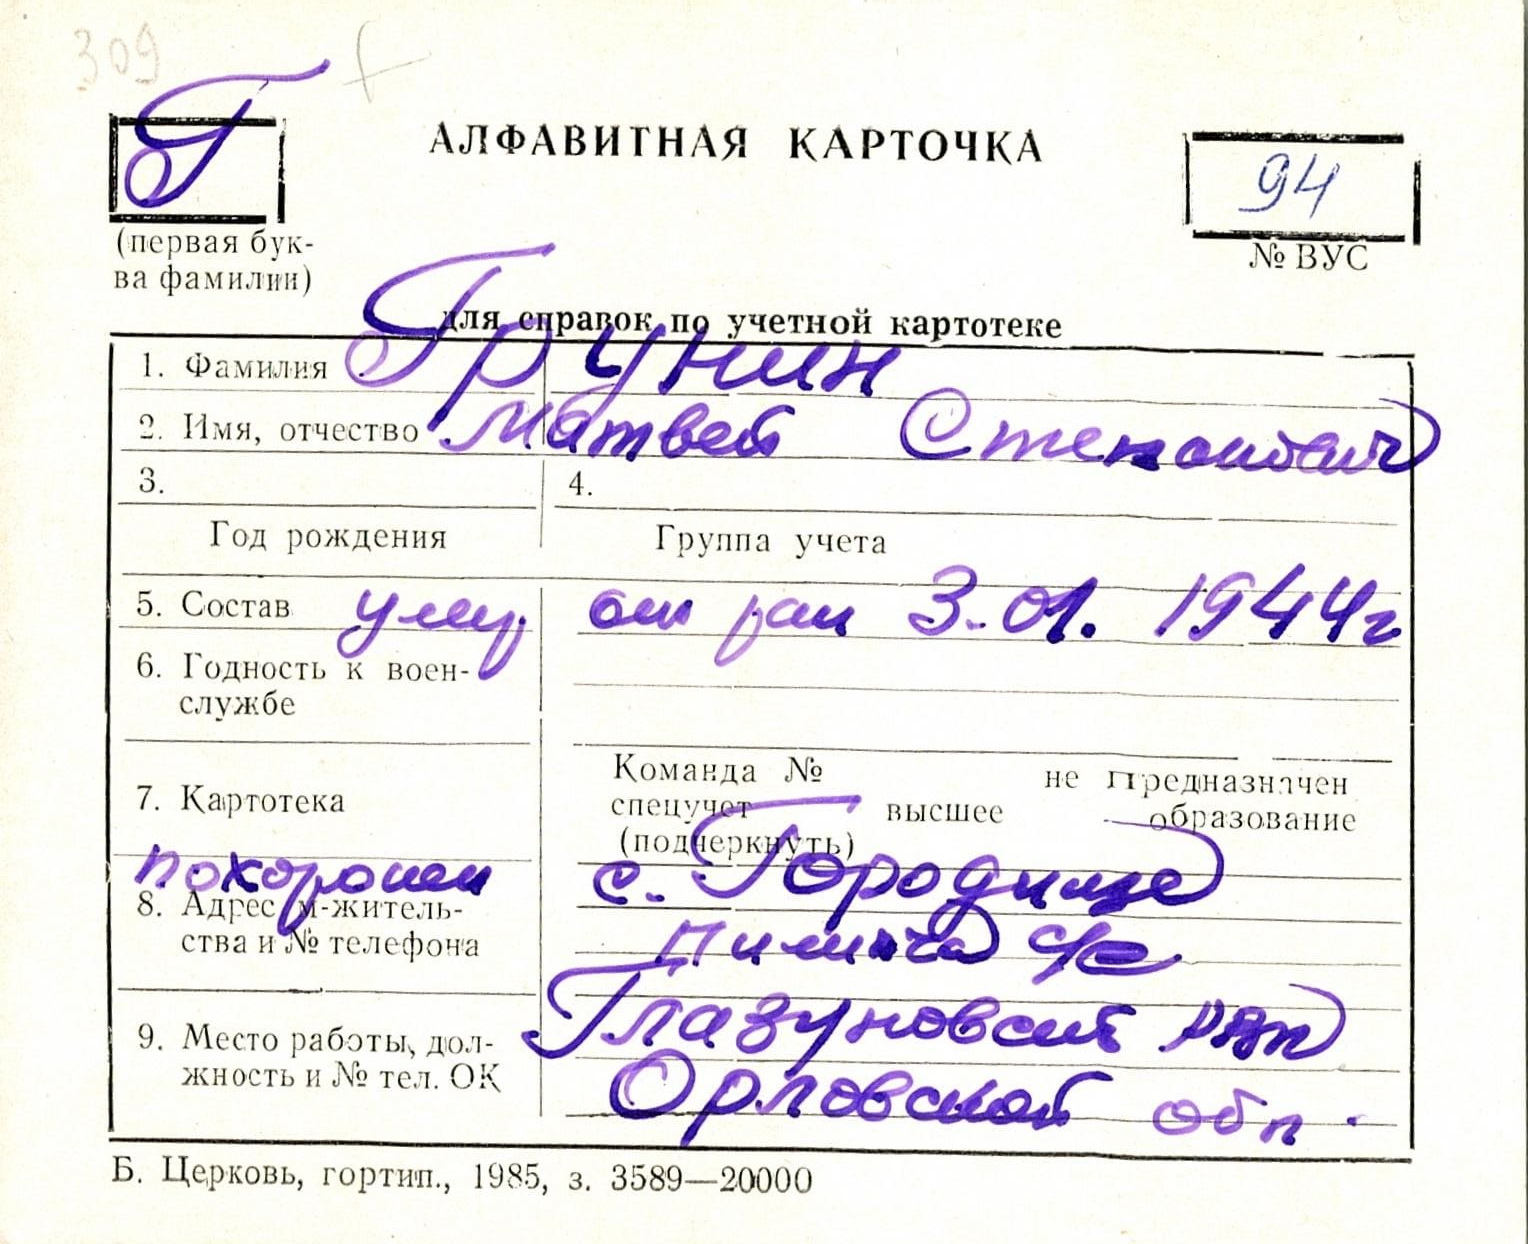 309
Г
АЛФАВИТНАЯ КАРТОЧКА
94
(первая бук-
ва фамилии)
№ ВУС
для справок по учетной картотеке
1. Фамилия Грунин
2. Имя, отчество Матвей Степанович
3. 4.
Год рождения Группа учета
5. Состав умер от ран 3.01. 1944г
6. Годность к воен-
службе
7. Картотека
Команда № не предназначен
спецучет высшее образование
(подчеркнуть)
похоронен с. Городище
8. Адрес м-житель-
ства и № телефона
с/с
Глазуновский р-н
9. Место работы, дол-
жность и № тел. ОК
Орловской обл.
Б. Церковь, гортип., 1985, з. 3589—20000